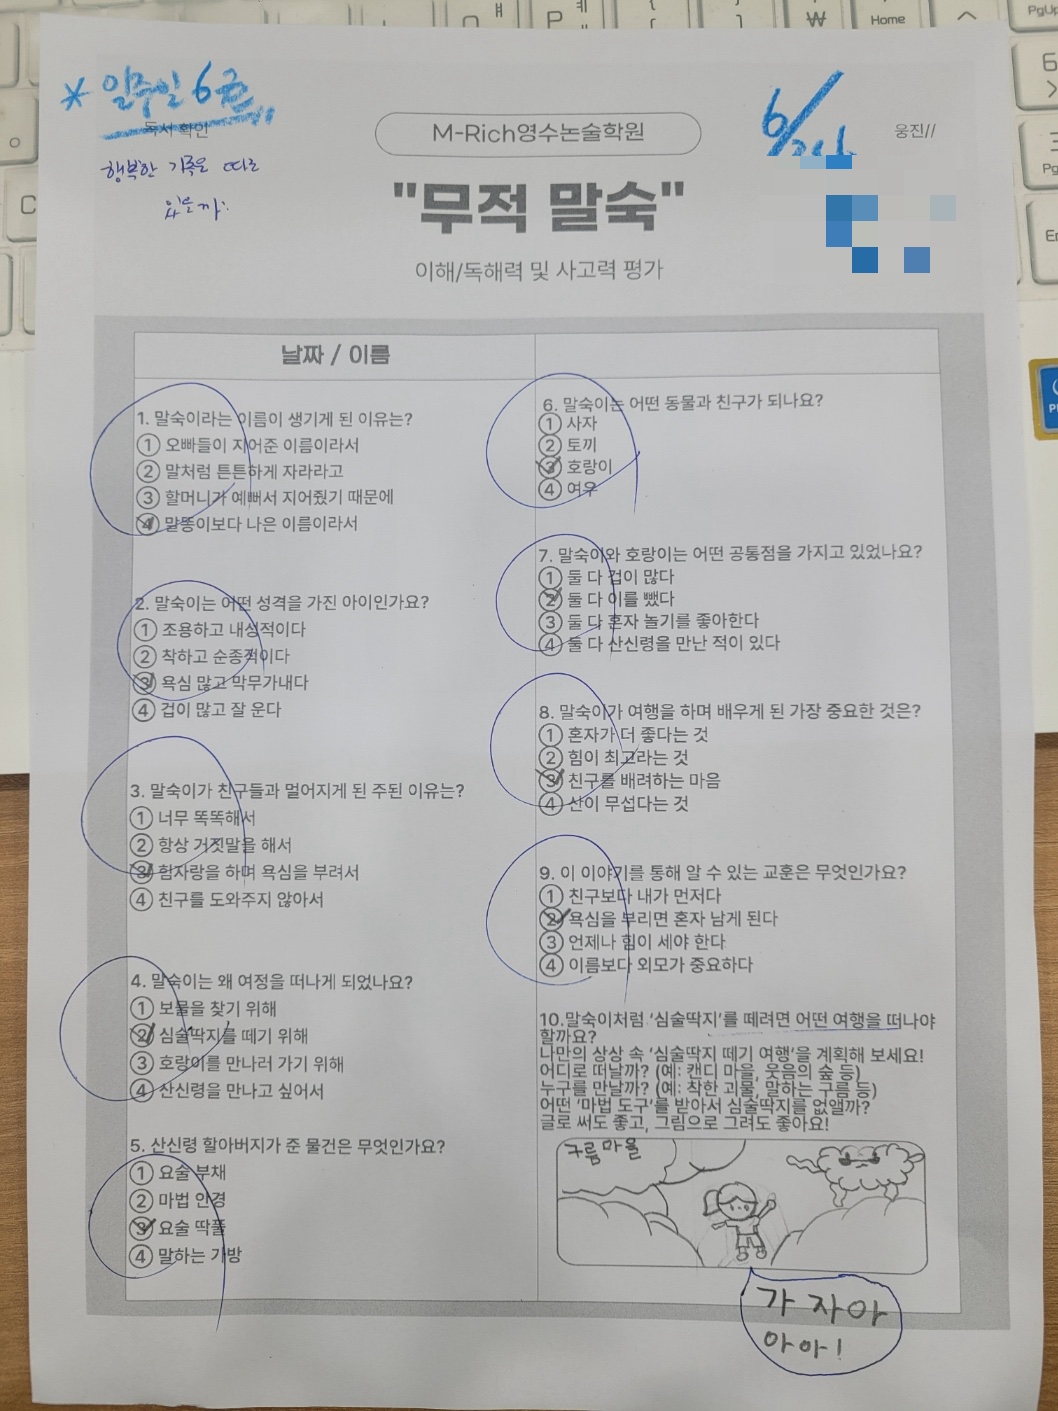 * 일주일 6권
독서 확인
행복한 가족은 따로
있을까?
M-Rich영수논술학원
6/
웅진//
"무적 말숙"
이해/독해력 및 사고력 평가
날짜 / 이름
1. 말숙이라는 이름이 생기게 된 이유는?
① 오빠들이 지어준 이름이라서
② 말처럼 튼튼하게 자라라고
③ 할머니가 예뻐서 지어줬기 때문에
④ 말똥이보다 나은 이름이라서
2. 말숙이는 어떤 성격을 가진 아이인가요?
① 조용하고 내성적이다
② 착하고 순종적이다
③ 욕심 많고 막무가내다
④ 겁이 많고 잘 운다
3. 말숙이가 친구들과 멀어지게 된 주된 이유는?
① 너무 똑똑해서
② 항상 거짓말을 해서
③ 힘자랑을 하며 욕심을 부려서
④ 친구를 도와주지 않아서
4. 말숙이는 왜 여정을 떠나게 되었나요?
① 보물을 찾기 위해
② 심술딱지를 떼기 위해
③ 호랑이를 만나러 가기 위해
④ 산신령을 만나고 싶어서
5. 산신령 할아버지가 준 물건은 무엇인가요?
① 요술 부채
② 마법 안경
③ 요술 딱풀
④ 말하는 가방
6. 말숙이는 어떤 동물과 친구가 되나요?
① 사자
② 토끼
③ 호랑이
④ 여우
7. 말숙이와 호랑이는 어떤 공통점을 가지고 있었나요?
① 둘 다 겁이 많다
② 둘 다 이를 뺐다
③ 둘 다 혼자 놀기를 좋아한다
④ 둘 다 산신령을 만난 적이 있다
8. 말숙이가 여행을 하며 배우게 된 가장 중요한 것은?
① 혼자가 더 좋다는 것
② 힘이 최고라는 것
③ 친구를 배려하는 마음
④ 산이 무섭다는 것
9. 이 이야기를 통해 알 수 있는 교훈은 무엇인가요?
① 친구보다 내가 먼저다
② 욕심을 부리면 혼자 남게 된다
③ 언제나 힘이 세야 한다
④ 이름보다 외모가 중요하다
10.말숙이처럼 '심술딱지'를 떼려면 어떤 여행을 떠나야
할까요?
나만의 상상 속 '심술딱지 떼기 여행'을 계획해 보세요!
어디로 떠날까? (예: 캔디 마을, 웃음의 숲 등)
누구를 만날까? (예: 착한 괴물, 말하는 구름 등)
어떤 '마법 도구'를 받아서 심술딱지를 없앨까?
글로 써도 좋고, 그림으로 그려도 좋아요!
구름 마을
가 자아
아아!